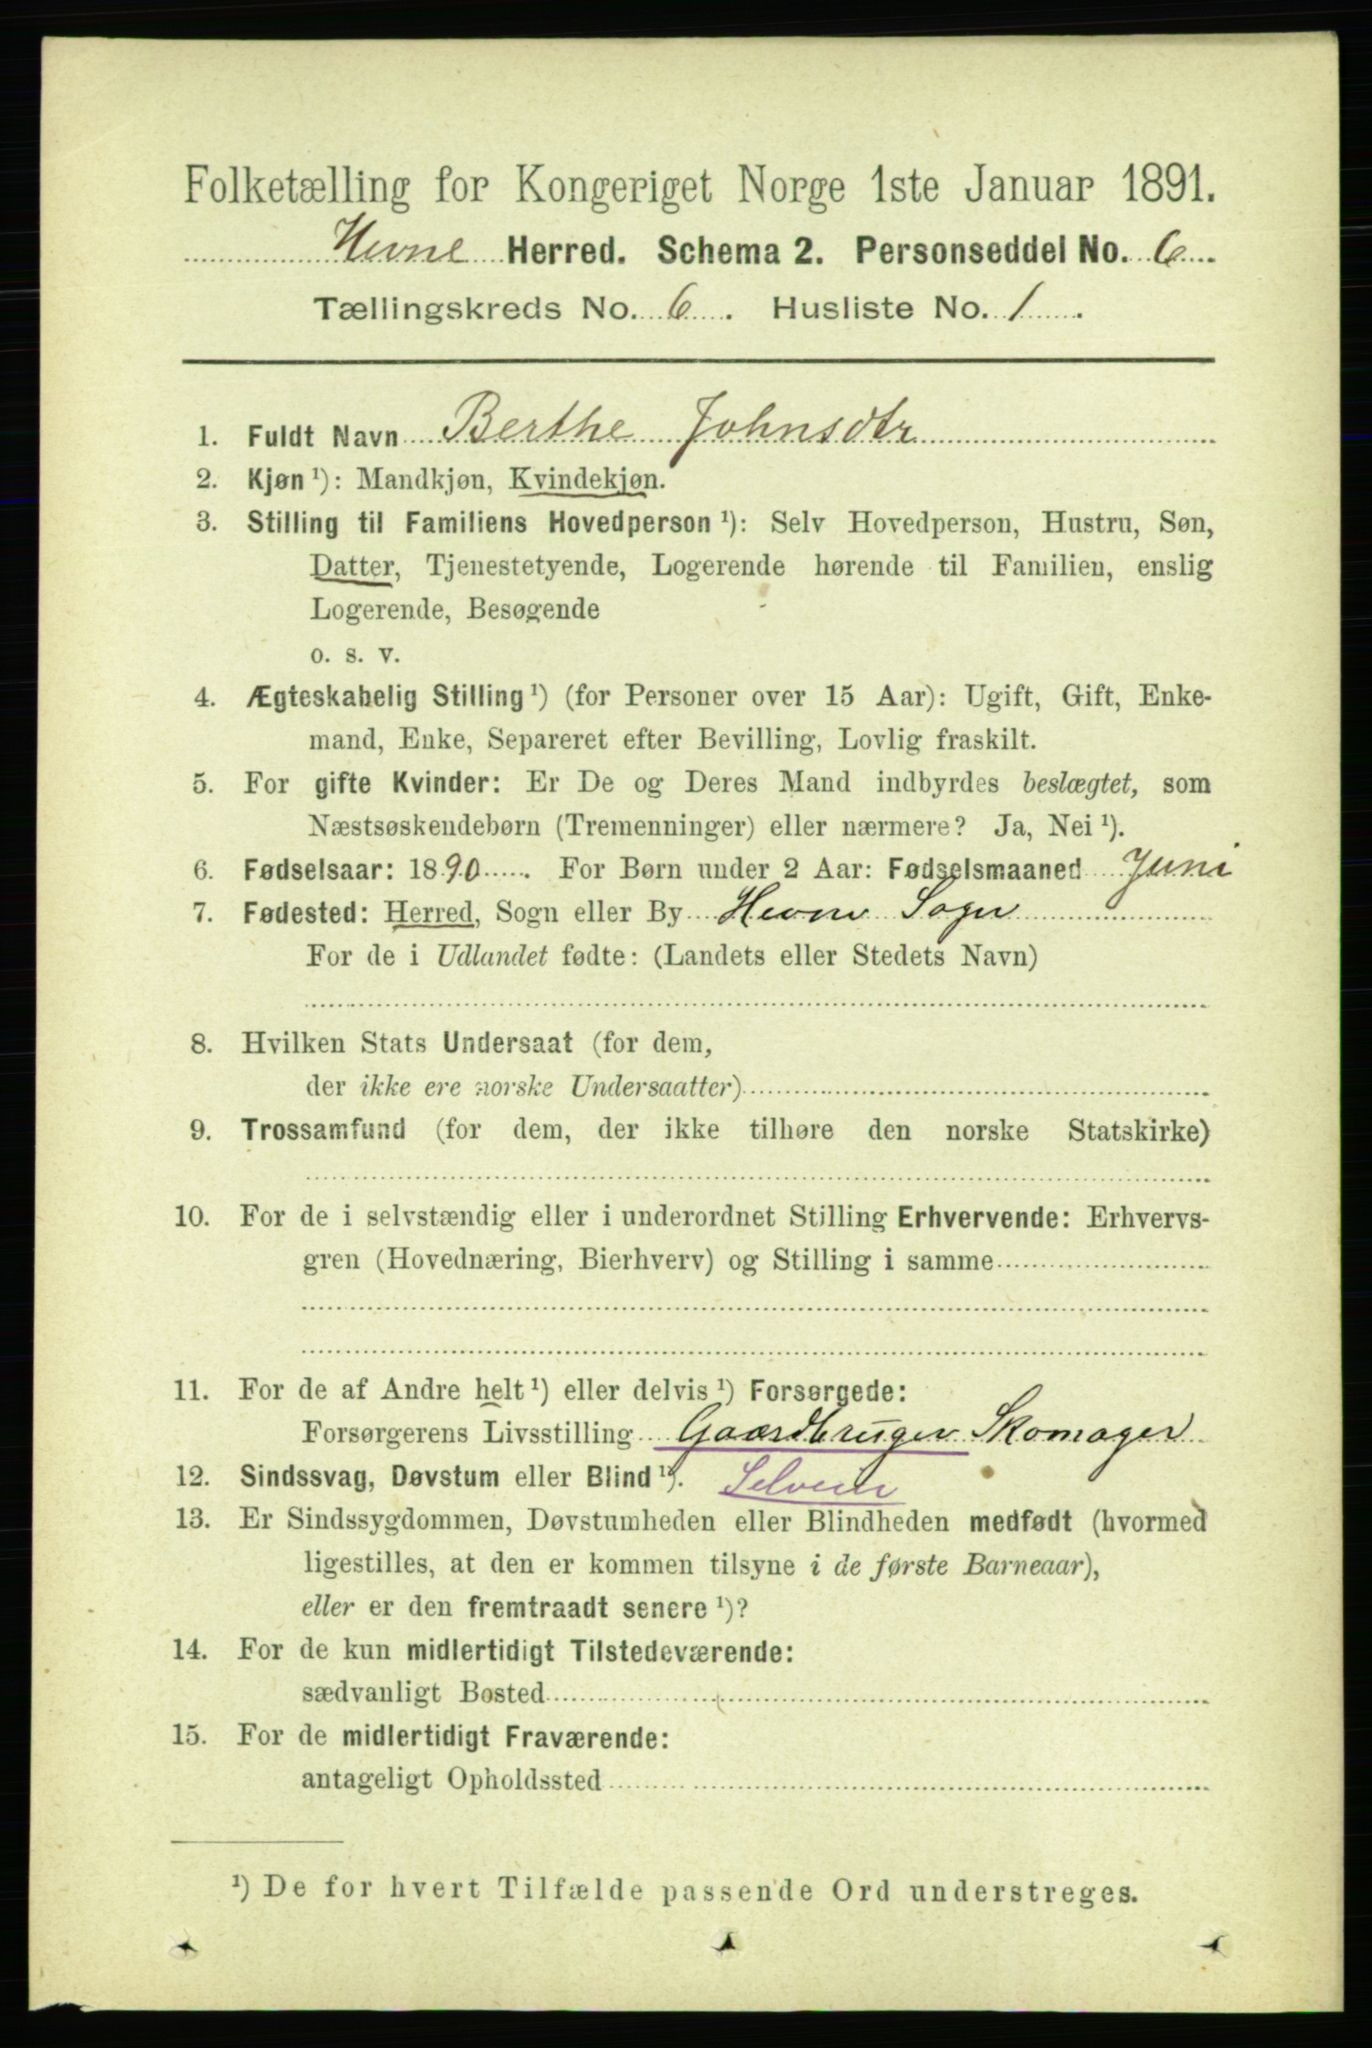 Folketælling for Kongeriget Norge 1ste Januar 1891.
Hevne Herred. Schema 2. Personseddel No. 6
Tællingskreds No. 6. Husliste No. 1.
1. Fuldt Navn Berthe Johnsdtr
2. Kjøn ¹): Mandkjøn, Kvindekjøn.
3. Stilling til Familiens Hovedperson ¹): Selv Hovedperson, Hustru, Søn,
Datter, Tjenestetyende, Logerende hørende til Familien, enslig
Logerende, Besøgende
o. s. v.
4. Ægteskabelig Stilling ¹) (for Personer over 15 Aar): Ugift, Gift, Enke-
mand, Enke, Separeret efter Bevilling, Lovlig fraskilt.
5. For gifte Kvinder: Er De og Deres Mand indbyrdes beslægtet, som
Næstsøskendebørn (Tremenninger) eller nærmere? Ja, Nei ¹).
6. Fødselsaar: 1890. For Børn under 2 Aar: Fødselsmaaned Juni
7. Fødested: Herred, Sogn eller By Hevne Sogn
For de i Udlandet fødte: (Landets eller Stedets Navn)
8. Hvilken Stats Undersaat (for dem,
der ikke ere norske Undersaatter)
9. Trossamfund (for dem, der ikke tilhøre den norske Statskirke)
10. For de i selvstændig eller i underordnet Stilling Erhvervende: Erhvervs-
gren (Hovednæring, Bierhverv) og Stilling i samme
11. For de af Andre helt ¹) eller delvis ¹) Forsørgede:
Forsørgerens Livsstilling Gaardbruger Skomager
12. Sindssvag, Døvstum eller Blind ¹). Selveier
13. Er Sindssygdommen, Døvstumheden eller Blindheden medfødt (hvormed
ligestilles, at den er kommen tilsyne i de første Barneaar),
eller er den fremtraadt senere ¹)?
14. For de kun midlertidigt Tilstedeværende:
sædvanligt Bosted
15. For de midlertidigt Fraværende:
antageligt Opholdssted
¹) De for hvert Tilfælde passende Ord understreges.